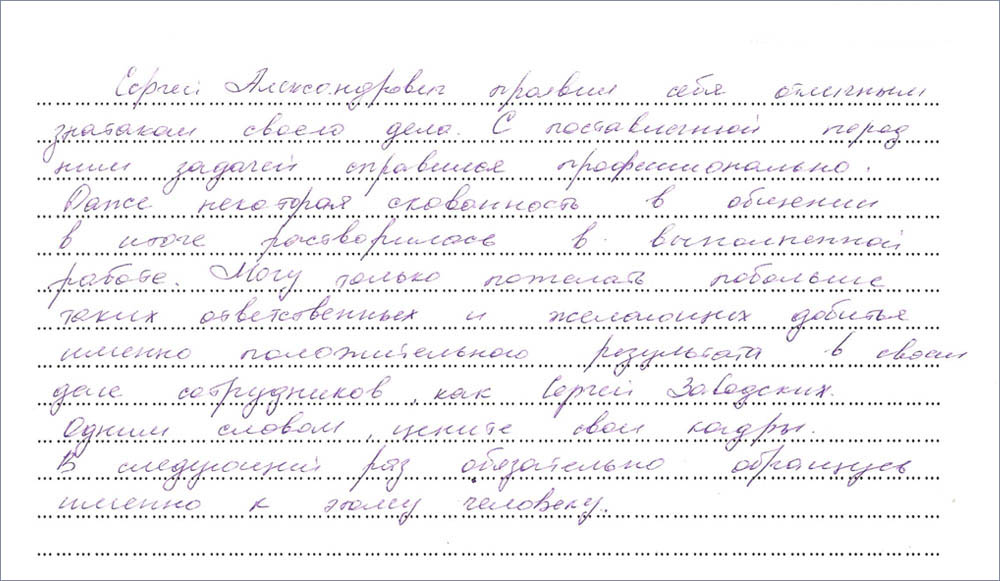 Сергей Александрович проявил себя отличным
знатаком своего дела. С поставленной перед
ним задачей справился профессионально.
Даже некоторая скованность в общении
в итоге растворилась в выполненной
работе. Могу только пожелать побольше
таких ответственных и желающих добиться
именно положительного результата в своем
деле сотрудников, как Сергей Заводских.
Одним словом, цените свои кадры.
В следующий раз обязательно обращусь
именно к этому человеку.